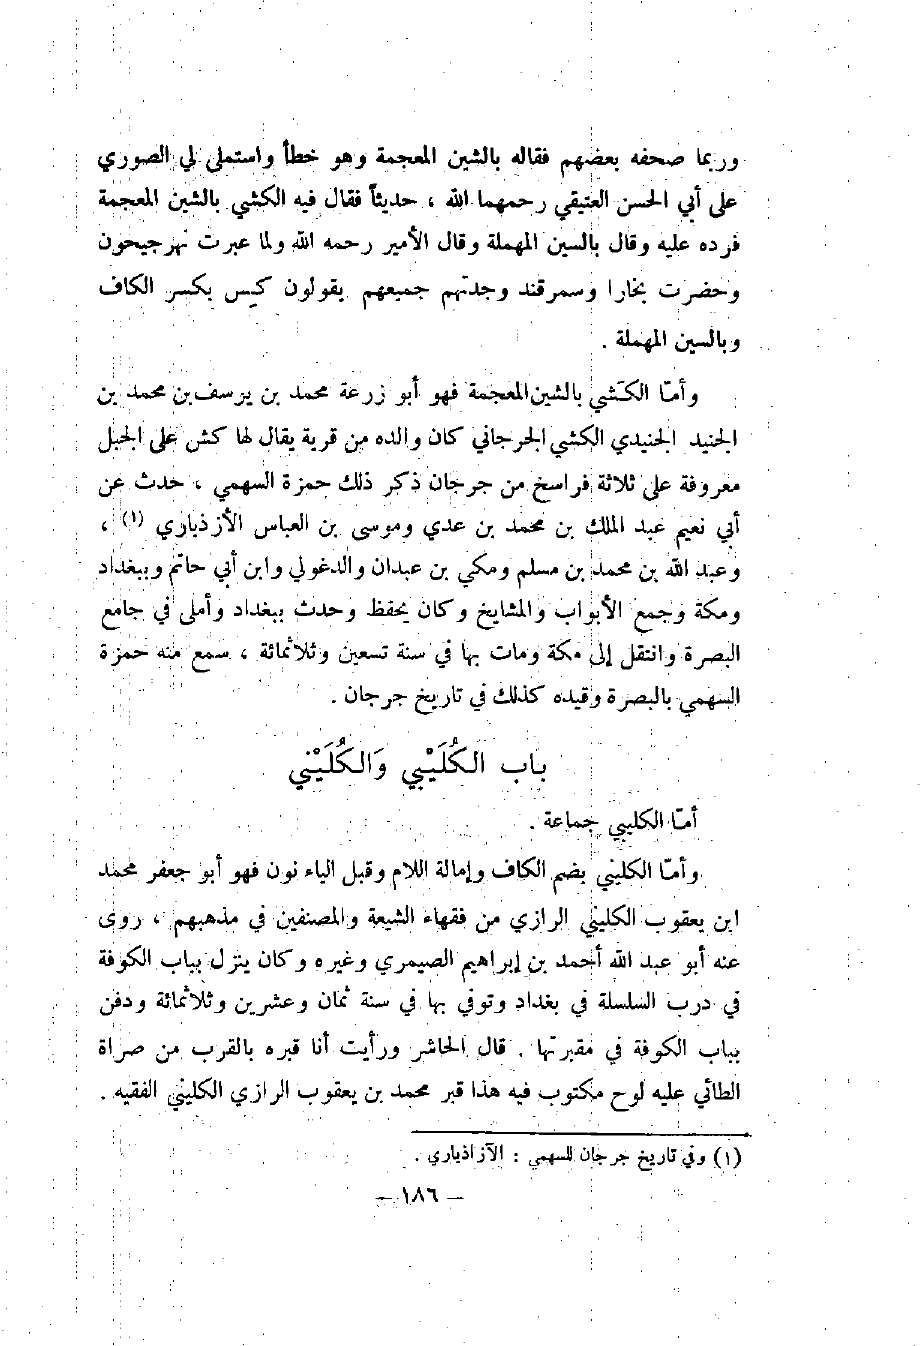 وربما صحفه بعضهم فقاله بالشين المعجمة وهو خطأ واستملى لي الصوري
على أبي الحسن العتيقي رحمهما الله ، حديثاً فقال فيه الكشي بالشين المعجمة
فرده عليه وقال بالسين المهملة وقال الأمير رحمه الله ولما عبرت نهر جيحون
وحضرت بخارا وسمرقند وجدتهم جميعهم يقولون كِس بكسر الكاف
وبالسين المهملة .
وأمّا الكَشي بالشين المعجمة فهو أبو زرعة محمد بن يوسف بن محمد بن
الجنيد الجنيدي الكشي الجرجاني كان والده من قرية يقال لها كش على الجبل
معروفة على ثلاثة فراسخ من جرجان ذكر ذلك حمزة السهمي ، حدث عن
أبي نعيم عبد الملك بن محمد بن عدي وموسى بن العباس الأزذياري (١) ،
وعبد الله بن محمد بن مسلم ومكي بن عبدان والدغولي وابن أبي حاتم وببغداد
ومكة وجمع الأبواب والمشايخ وكان يحفظ وحدث ببغداد وأملى في جامع
البصرة وانتقل إلى مكة ومات بها في سنة تسعين وثلاثمائة ، سمع منه حمزة
السهمي بالبصرة وقيده كذلك في تاريخ جرجان .
باب الكُلَيْبي وَالكُلَيْني
أمّا الكليبي جماعة .
وأمّا الكليني بضم الكاف وإمالة اللام وقبل الياء نون فهو أبو جعفر محمد
ابن يعقوب الكليني الرازي من فقهاء الشيعة والمصنفين في مذهبهم ، روى
عنه أبو عبد الله أحمد بن إبراهيم الصيمري وغيره وكان ينزل بباب الكوفة
في درب السلسلة في بغداد وتوفي بها في سنة ثمان وعشرين وثلاثمائة ودفن
بباب الكوفة في مقبرتها . قال الحاشر ورأيت أنا قبره بالقرب من صراة
الطائي عليه لوح مكتوب فيه هذا قبر محمد بن يعقوب الرازي الكليني الفقيه .
(١) وفي تاريخ جرجان للسهمي : الآزاذياري .
– ١٨٦ –